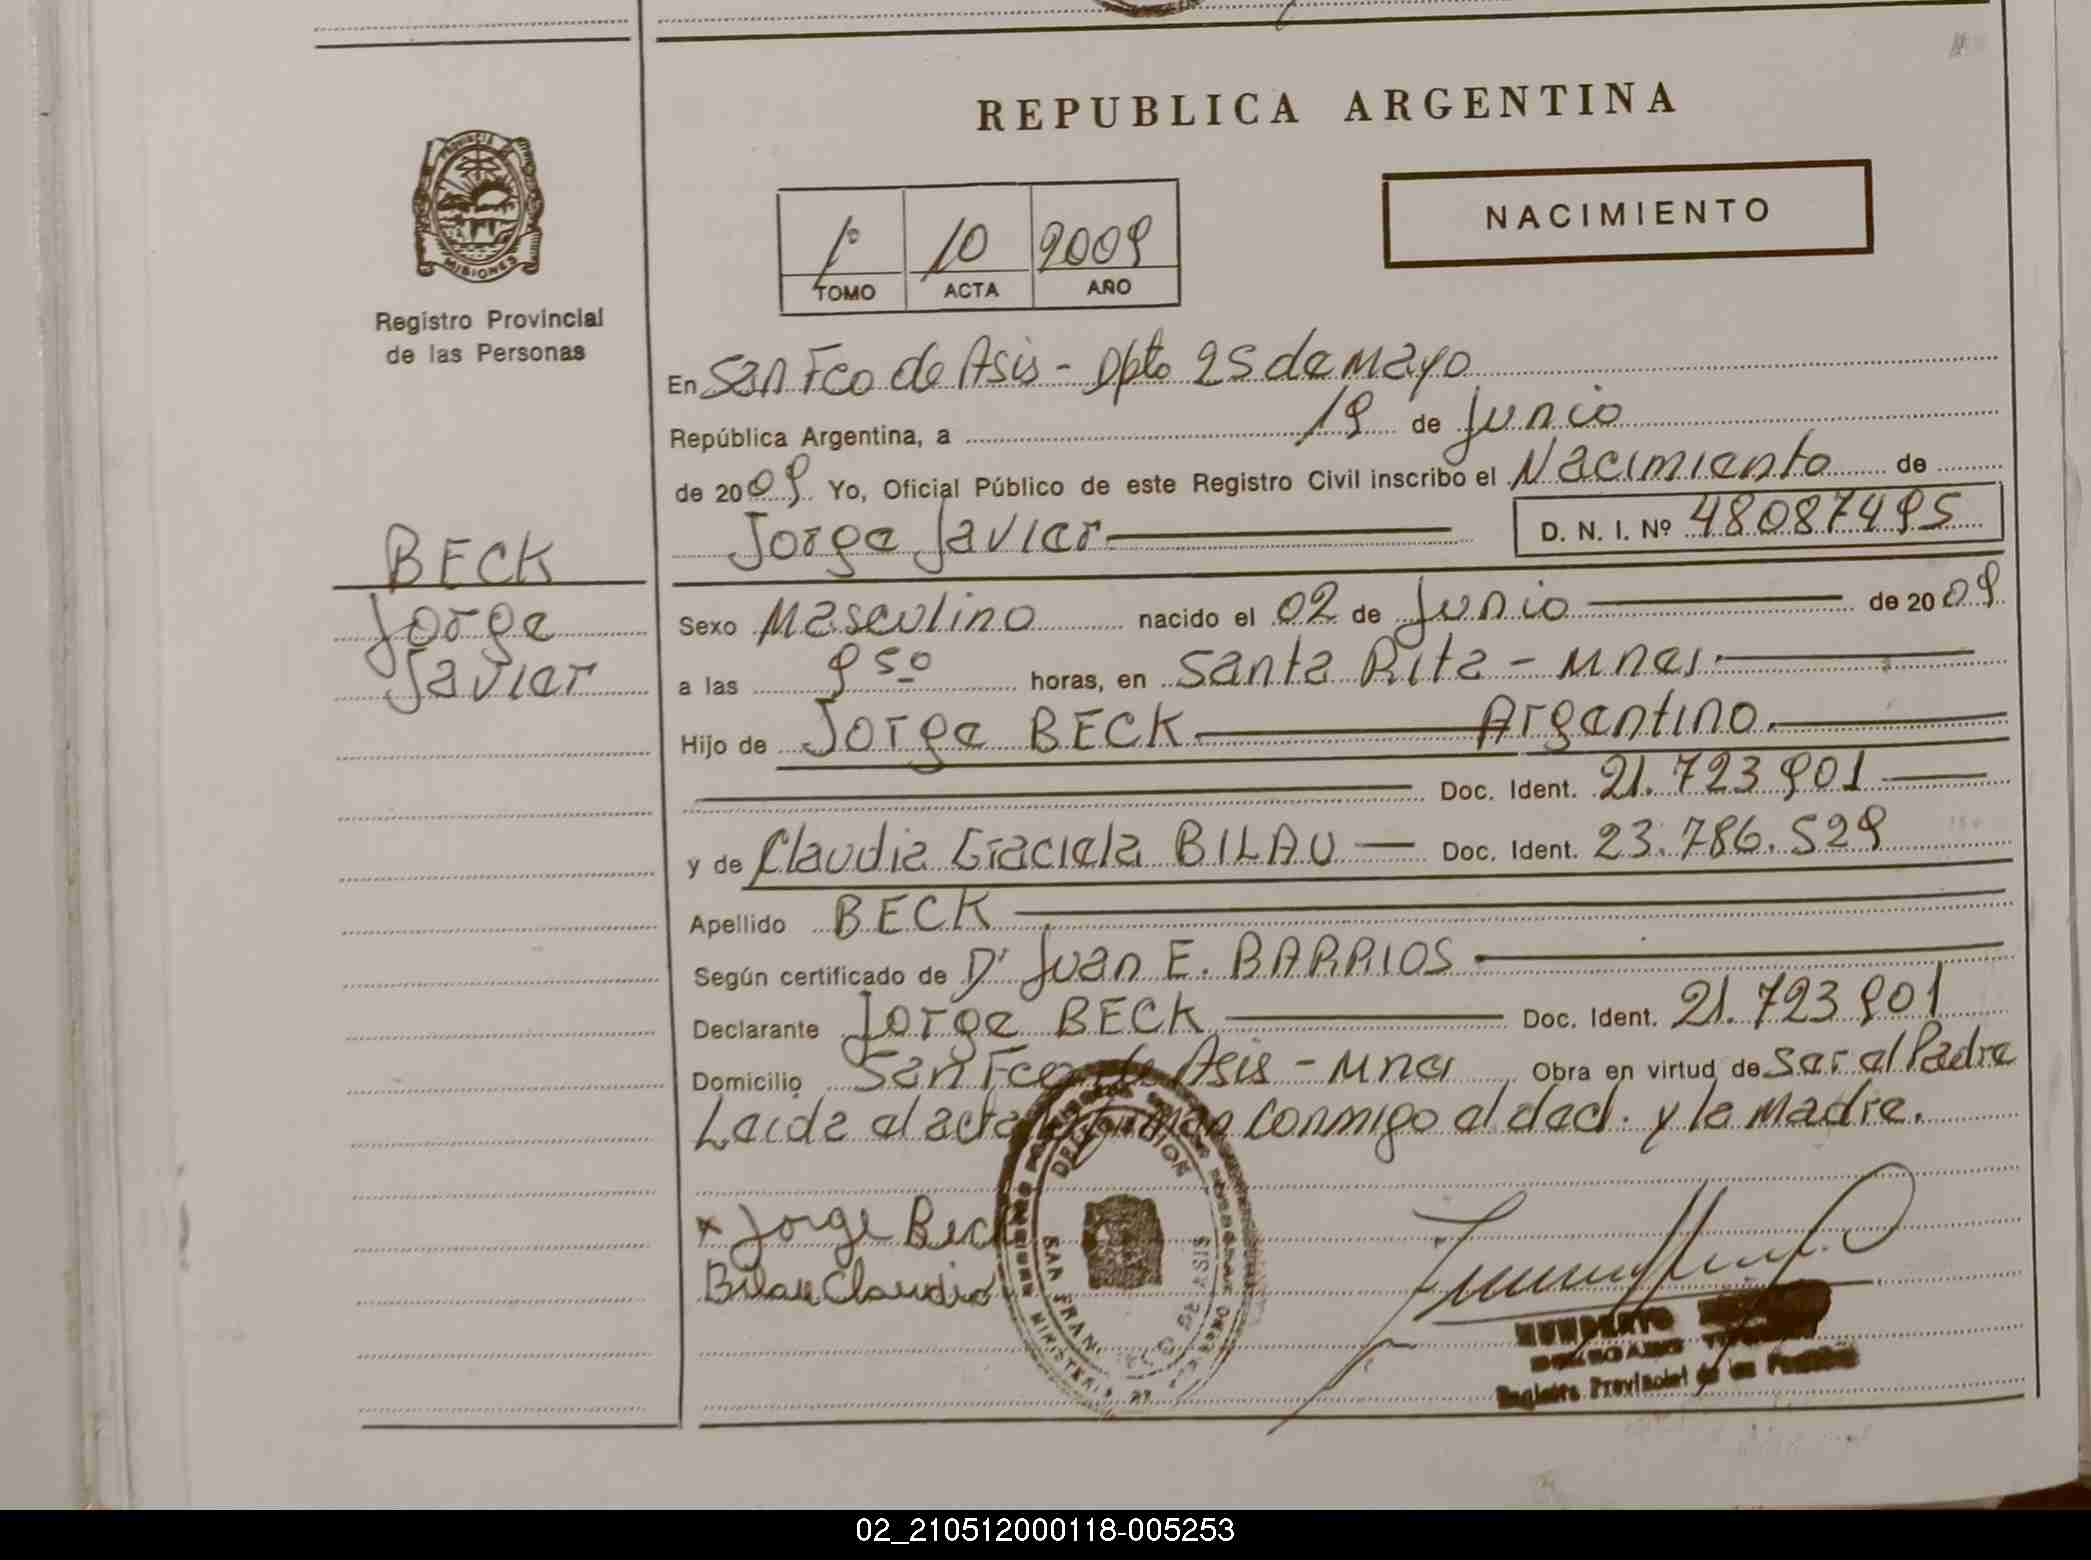 REPUBLICA ARGENTINA
PROVINCIA DE
MISIONES
Registro Provincial
de las Personas
1º 10 2009
TOMO ACTA AÑO
NACIMIENTO
En San Fco de Asis - Dpto 25 de Mayo
República Argentina, a 19 de Junio
de 2009 Yo, Oficial Público de este Registro Civil inscribo el Nacimiento de
Jorge Javier D. N. I. Nº 48087495
BECK
Jorge
Javier
Sexo Masculino nacido el 02 de Junio de 2009
a las 9 50 horas, en Santa Rita - Mnes.
Hijo de Jorge BECK Argentino.
Doc. Ident. 21.723.901
y de Claudia Graciela BILAU Doc. Ident. 23.786.529
Apellido BECK
Según certificado de Dr Juan E. BARRIOS
Declarante Jorge BECK Doc. Ident. 21.723.901
Domicilio San Fco de Asis - Mnes Obra en virtud de ser el Padre
Leida el acta la firman conmigo el decl. y la Madre.
Jorge Beck
Bilau Claudia
DELEGACION
SAN FRANCISCO DE ASIS
Registro Provincial de las Personas
02_210512000118-005253